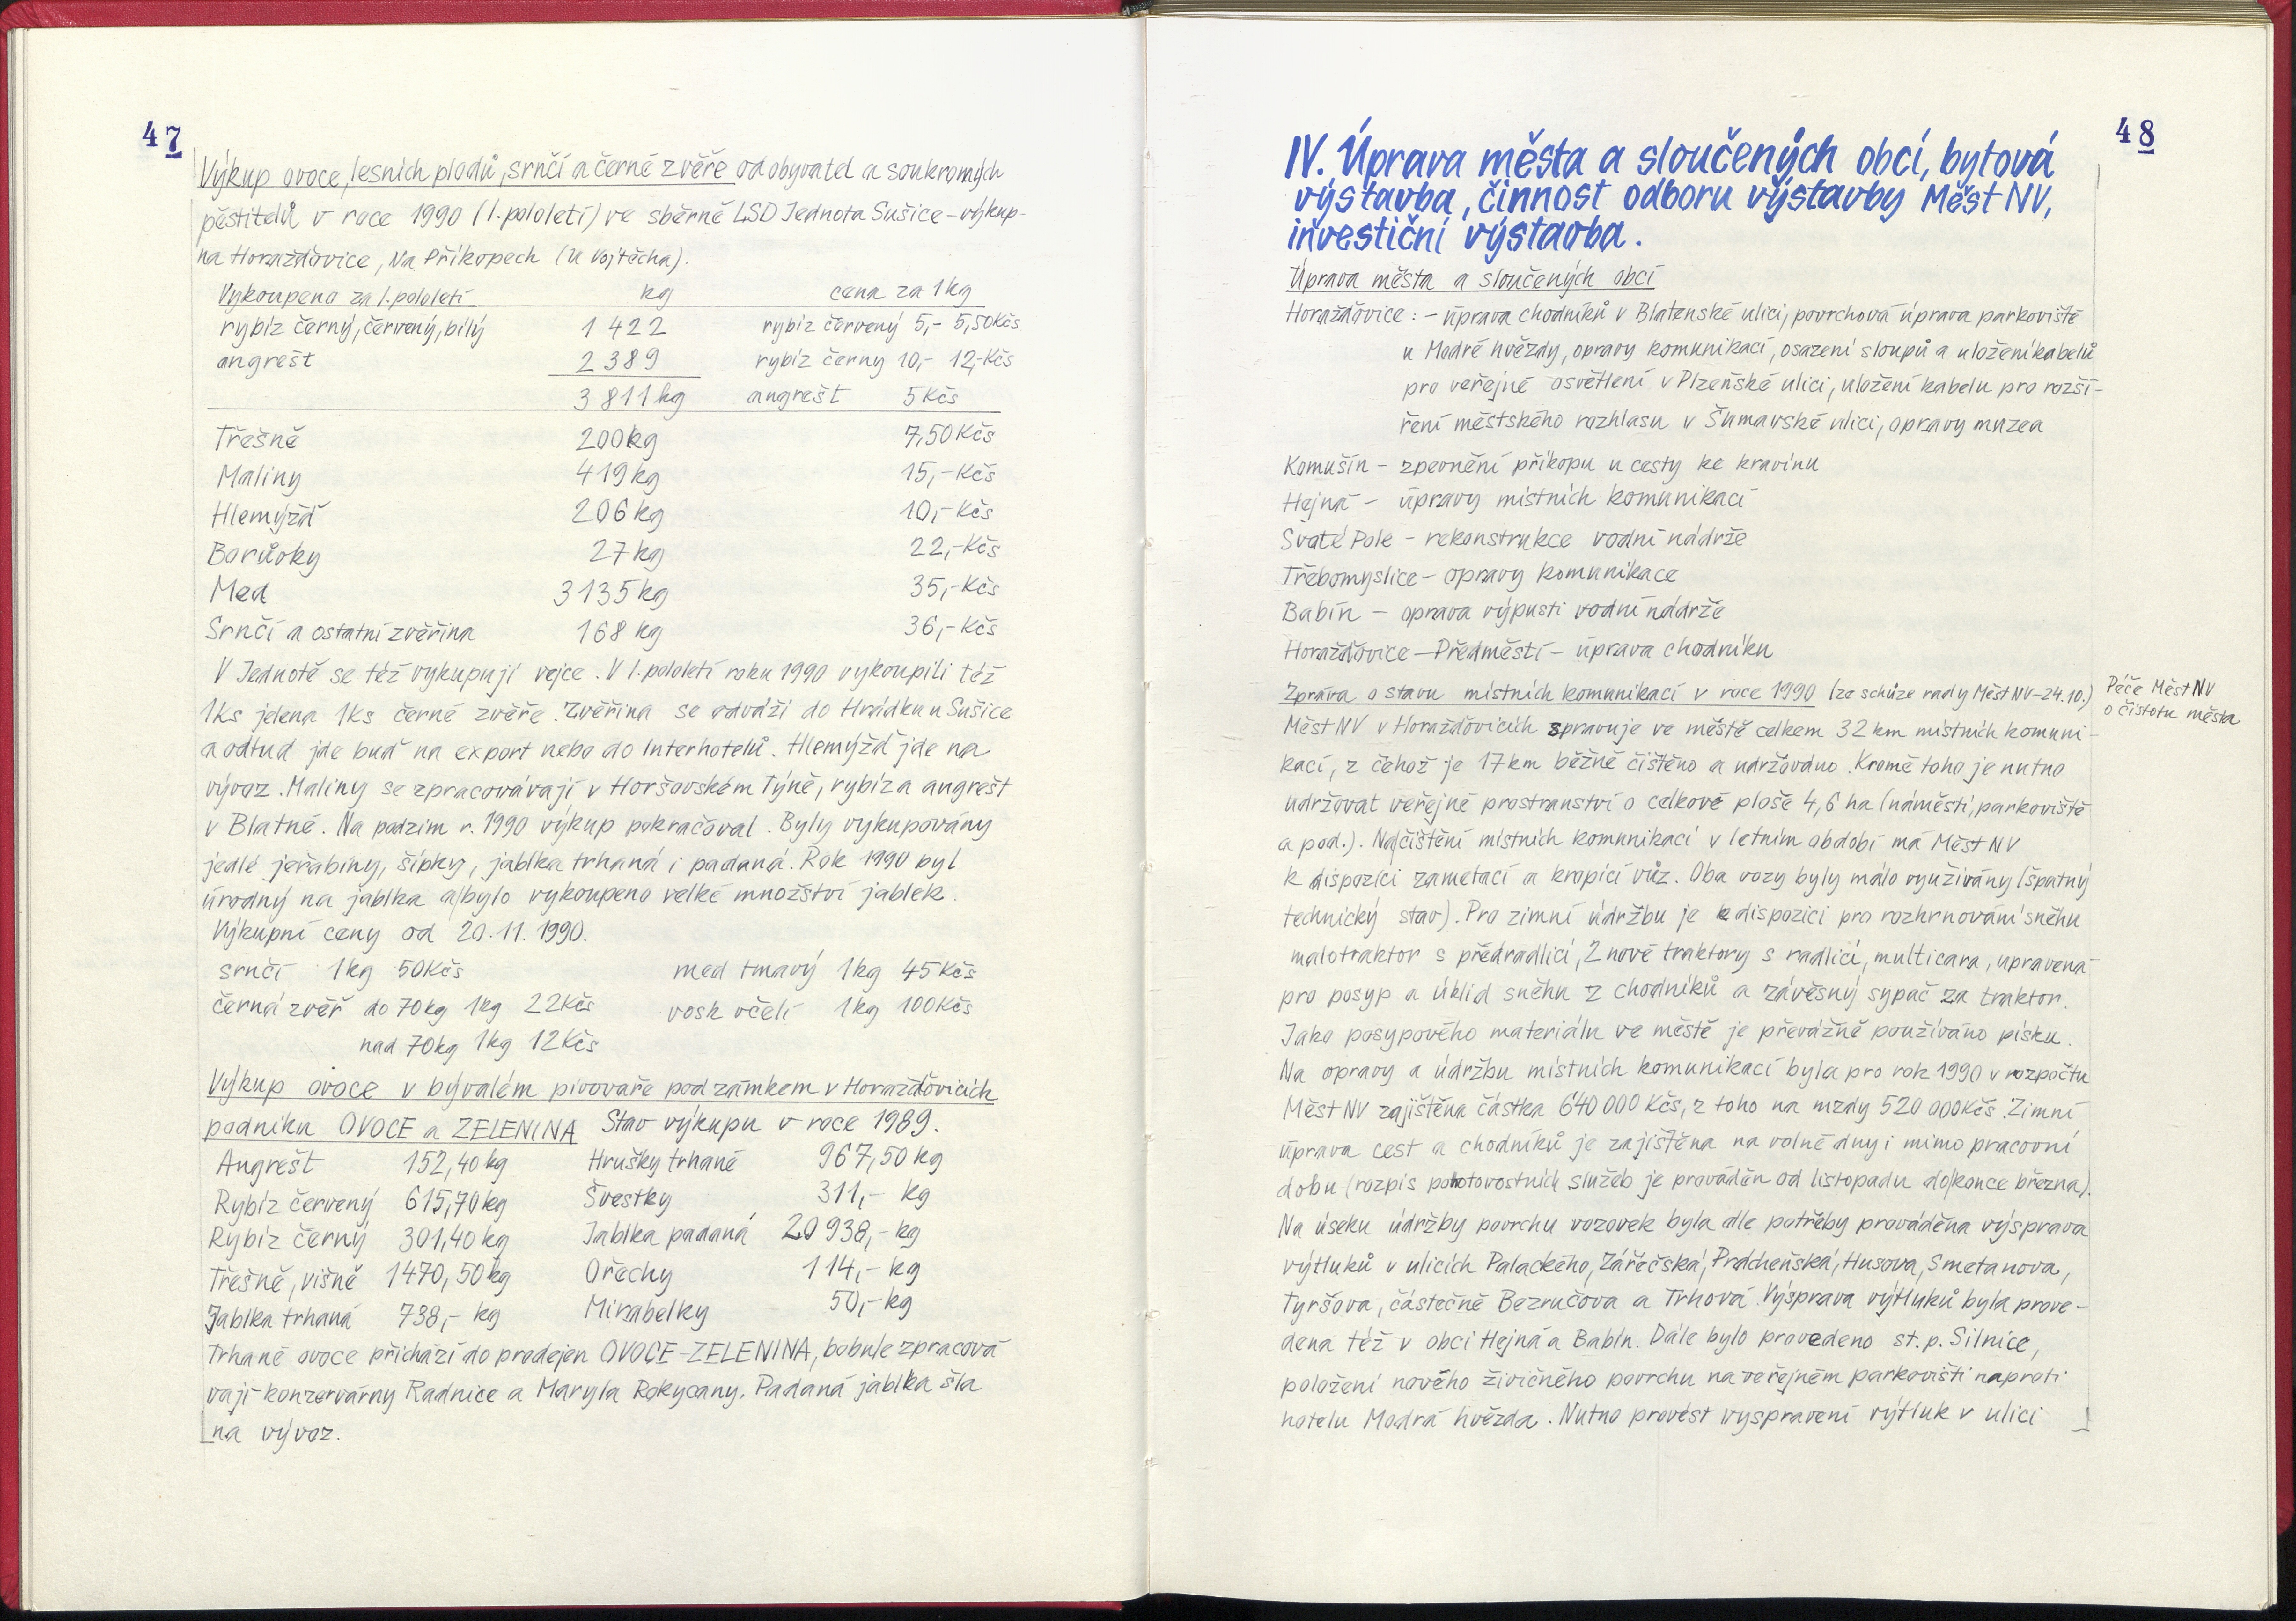 47
Výkup ovoce, lesních plodů, srnčí a černé zvěře od obyvatel a soukromých
pěstitelů v roce 1990 (I. pololetí) ve sběrně LSD Jednota Sušice – výkup-
na Horažďovice, Na Příkopech (u Vojtěcha).
Vykoupeno za I. pololetí kg cena za 1kg
rybíz černý, červený, bílý 1 422 rybíz červený 5,- 5,50Kčs
angrešt 2 389 rybíz černy 10,- 12,-Kčs
3 811kg angrešt 5Kčs
Třešně 200kg 7,50Kčs
Maliny 419kg 15,-Kčs
Hlemýžď 206kg 10,-Kčs
Borůvky 27kg 22,-Kčs
Med 3135kg 35,-Kčs
Srnčí a ostatní zvěřina 168 kg 36,-Kčs
V Jednotě se též vykupují vejce. V I. pololetí roku 1990 vykoupili též
1ks jelena 1ks černé zvěře. Zvěřina se odváží do Hrádku u Sušice
a odtud jde buď na export nebo do Interhotelů. Hlemýžď jde na
vývoz. Maliny se zpracovávají v Horšovském Týně, rybíz a angrešt
v Blatné. Na podzim r. 1990 výkup pokračoval. Byly vykupovány
jedlé jeřabiny, šípky, jablka trhaná i padaná. Rok 1990 byl
úrodný na jablka a bylo vykoupeno velké množství jablek.
Výkupní ceny od 20.11.1990.
srnčí 1kg 50Kčs med tmavý 1kg 45Kčs
černá zvěř do 70kg 1kg 22Kčs vosk včelí 1kg 100Kčs
nad 70kg 1kg 12Kčs
Výkup ovoce v bývalém pivovaře pod zámkem v Horažďovicích
podniku OVOCE a ZELENINA Stav výkupu v roce 1989.
Angrešt 152,40kg Hrušky trhané 967,50kg
Rybíz červený 615,70kg Švestky 311,- kg
Rybíz černý 301,40kg Jablka padaná 20 938,- kg
Třešně, višně 1470,50kg Ořechy 114,- kg
Jablka trhaná 738,- kg Mirabelky 50,- kg
Trhané ovoce přichází do prodejen OVOCE-ZELENINA, bobule zpracová
vají konzervárny Radnice a Maryla Rokycany. Padaná jablka šla
na vývoz.
48
IV. Úprava města a sloučených obcí, bytová
výstavba, činnost odboru výstavby MěstNV,
investiční výstavba.
Úprava města a sloučených obcí
Horažďovice: – úprava chodníků v Blatenské ulici, povrchová úprava parkoviště
u Modré hvězdy, opravy komunikací, osazení sloupů a uložení kabelů
pro veřejné osvětlení v Plzeňské ulici, uložení kabelu pro rozší-
ření městského rozhlasu v Šumavské ulici, opravy muzea
Komušín – zpevnění příkopu u cesty ke kravínu
Hejná – úpravy místních komunikací
Svaté Pole – rekonstrukce vodní nádrže
Třebomyslice – opravy komunikace
Babín – oprava výpusti vodní nádrže
Horažďovice – Předměstí – úprava chodníku
Zpráva o stavu místních komunikací v roce 1990 (ze schůze rady MěstNV–24.10.)
Péče MěstNV
o čistotu města
MěstNV v Horažďovicích spravuje ve městě celkem 32 km místních komuni-
kací, z čehož je 17 km běžně čištěno a udržováno. Kromě toho je nutno
udržovat veřejné prostranství o celkové ploše 4,6 ha (náměstí, parkoviště
a pod.). Na čištění místních komunikací v letním období má MěstNV
k dispozici zametací a kropicí vůz. Oba vozy byly málo využívány (špatný
technický stav). Pro zimní údržbu je k dispozici pro rozhrnování sněhu
malotraktor s předradlicí, 2 nové traktory s radlicí, multicara, upravená
pro posyp a úklid sněhu z chodníků a závěsný sypač za traktor.
Jako posypového materiálu ve městě je převážně používáno písku.
Na opravy a údržbu místních komunikací byla pro rok 1990 v rozpočtu
MěstNV zajištěna částka 640 000 Kčs, z toho na mzdy 520 000Kčs. Zimní
úprava cest a chodníků je zajištěna na volné dny i mimo pracovní
dobu (rozpis pohotovostních služeb je prováděn od listopadu do konce března).
Na úseku údržby povrchu vozovek byla dle potřeby prováděna výsprava
výtluků v ulicích Palackého, Zářečská, Prácheňská, Husova, Smetanova,
Tyršova, částečně Bezručova a Trhová. Výsprava výtluků byla prove-
dena též v obci Hejná a Babín. Dále bylo provedeno st. p. Silnice,
položení nového živičného povrchu na veřejném parkovišti naproti
hotelu Modrá hvězda. Nutno provést vyspravení výtluk v ulici